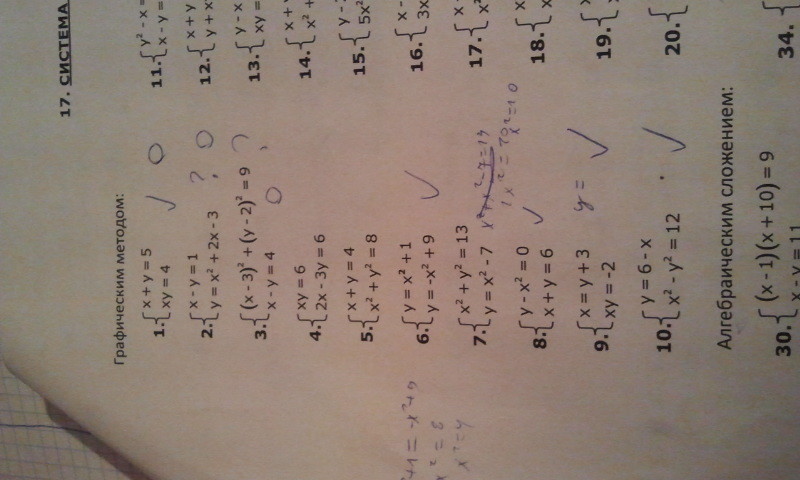 17. СИСТЕМА
Графическим методом:
1. { x + y = 5
xy = 4
2. { x - y = 1
y = x² + 2x - 3
3. { (x - 3)² + (y - 2)² = 9
x - y = 4
4. { xy = 6
2x - 3y = 6
5. { x + y = 4
x² + y² = 8
6. { y = x² + 1
y = -x² + 9
7. { x² + y² = 13
y = x² - 7
8. { y - x² = 0
x + y = 6
9. { x = y + 3
xy = -2
y =
10. { y = 6 - x
x² - y² = 12
11. { y² - x =
x - y =
12. { x + y
13. { y - x
xy =
14. {
x² +
15. { y -
5x²
16. { x -
3x
17. {
18. {
19. {
20. {
Алгебраическим сложением:
30. { (x - 1)(x + 10) = 9
x - y = 11
34. {
x² = 8
x² = 4